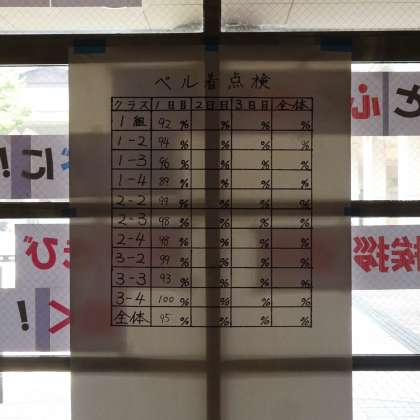 ベル着点検
クラス 1日目 2日目 3日目 全体
1組 92% % % %
1-2 94% % % %
1-3 96% % % %
1-4 89% % % %
2-2 99% % % %
2-3 98% % % %
2-4 98% % % %
3-2 99% % % %
3-3 93% % % %
3-4 100% % % %
全体 95% % % %
心
に!
び
挨拶
く!